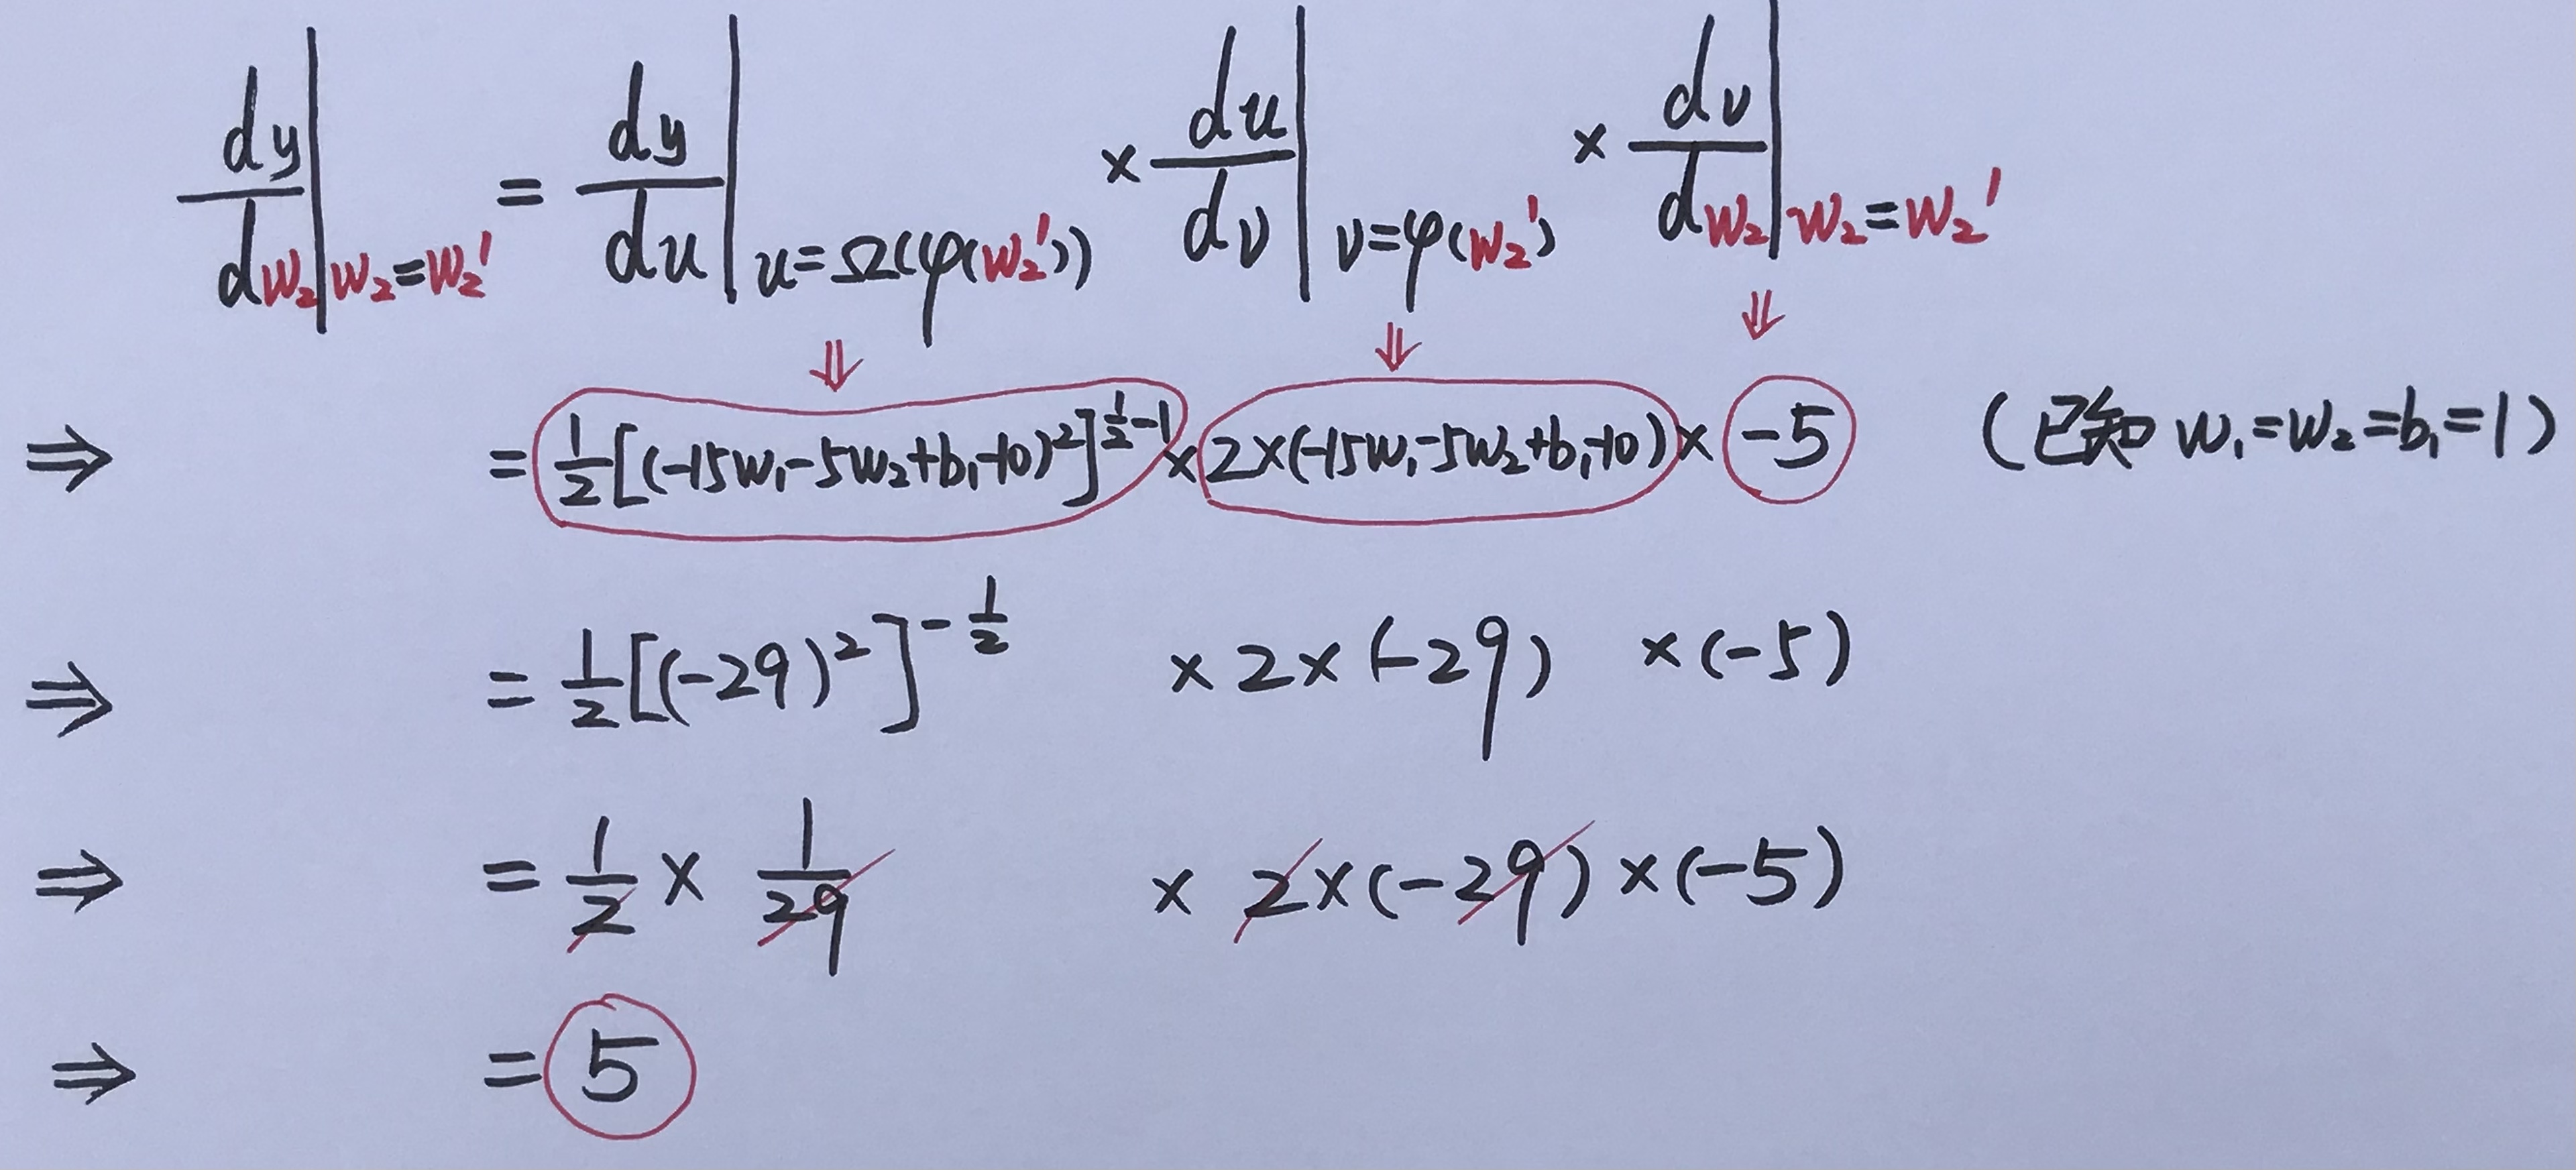 dy/dw₂|w₂=w₂' = dy/du|u=Ω(φ(w₂')) × du/dv|v=φ(w₂') × dv/dw₂|w₂=w₂'
⇓ ⇓ ⇓
⇒ = ½[(-15w₁-5w₂+b₁-10)²]^(½-1) × 2×(-15w₁-5w₂+b₁-10) × -5 (已知 w₁=w₂=b₁=1)
⇒ = ½[(-29)²]^(-½) × 2×(-29) × (-5)
⇒ = ½ × 1/29 × 2×(-29)×(-5)
⇒ = 5